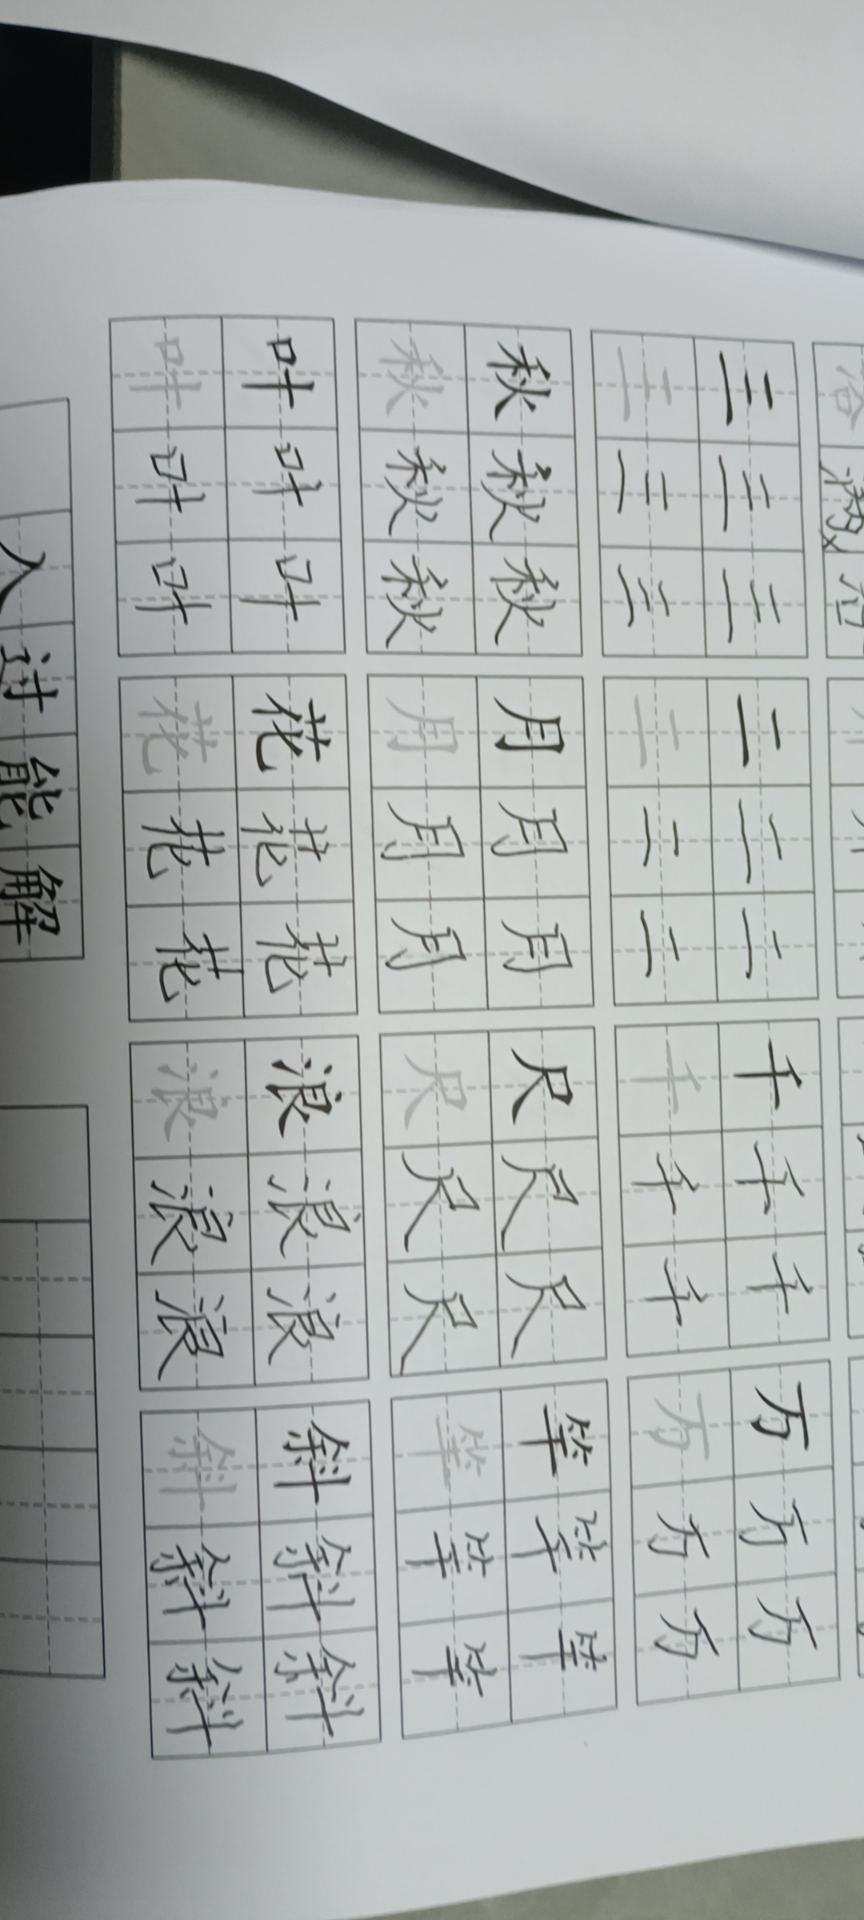 三三三 二二二 千千千 万万万
三三三 二二二 千千千 万万万
秋秋秋 月月月 尺尺尺 竿竿竿
秋秋秋 月月月 尺尺尺 竿竿竿
叶叶叶 花花花 浪浪浪 斜斜斜
叶叶叶 花花花 浪浪浪 斜斜斜
入过能解